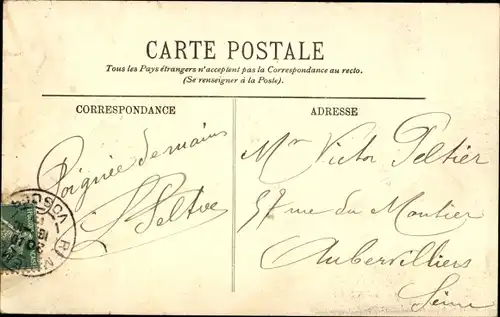 CARTE POSTALE
Tous les Pays étrangers n'acceptent pas la Correspondance au recto.
(Se renseigner à la Poste).
CORRESPONDANCE
Poignée de mains
ADRESSE
Mr Victor Peltier
57 rue du Moutier
Aubervilliers
Seine
VOSGES